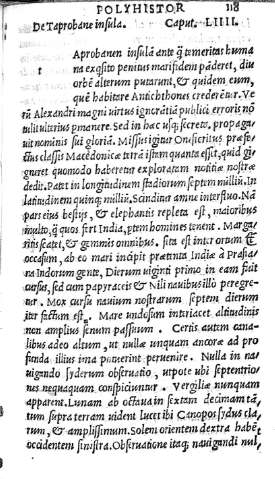 POLYHISTOR 118
De Taprobane insula. Caput. LIIII.
t Aprobanen insulã ante q̃ temeritas huma
na exqsito penitus marisidem pãderet, diu
orbẽ alterum putarunt, & quidem eum,
quẽ habitare Antichthones crederẽtur. Ve
rũ Alexandri magni virtus ignorãtiã publici erroris nõ
tulit ulterius pmanere. Sed in hæc usq; secreta, propaga
uit nominis sui gloriã. Missus igitur Onesicritus præfe
ctus classis Macedonicæ terrã istam quanta esset, quid gi
gneret quomodo haberetur exploratam notitiæ nostræ
dedit. Patet in longitudinem stadiorum septem milliũ. In
latitudinem quinq; milliũ. Scinditur amne interfluo. Nã
pars eius bestijs, & elephantis repleta est, maioribus
multo, q̃ quos fert India, ptem homines tenent. Marga
ritis scatet, & gemmis omnibus. Sita est inter ortum &
occasum, ab eo mari incipit prætenta Indiæ à Prasia
na Indorum gente, Dierum uiginti primo in eam fuit
cursus, sed cum papyraceis & Nili nauibus illo peregre-
tur. Mox cursu nauium nostrarum septem dierum
iter factum est. Mare undosum interiacet altitudinis
non amplius senum passuum. Certis autem cana-
libus adeo altum, ut nullæ unquam ancoræ ad pro
funda illius ima potuerint peruenire. Nulla in na
uigando syderum obseruatio, utpote ubi septentrio-
nes nequaquam conspiciuntur. Vergiliæ nunquam
apparent. Lunam ab octaua in sextam decimam tã
tum supra terram uident lucet ibi Canopos sydus cla-
rum, & amplissimum. Solem orientem dextra habẽt
occidentem sinistra. Obseruatione itaq; nauigandi nul,